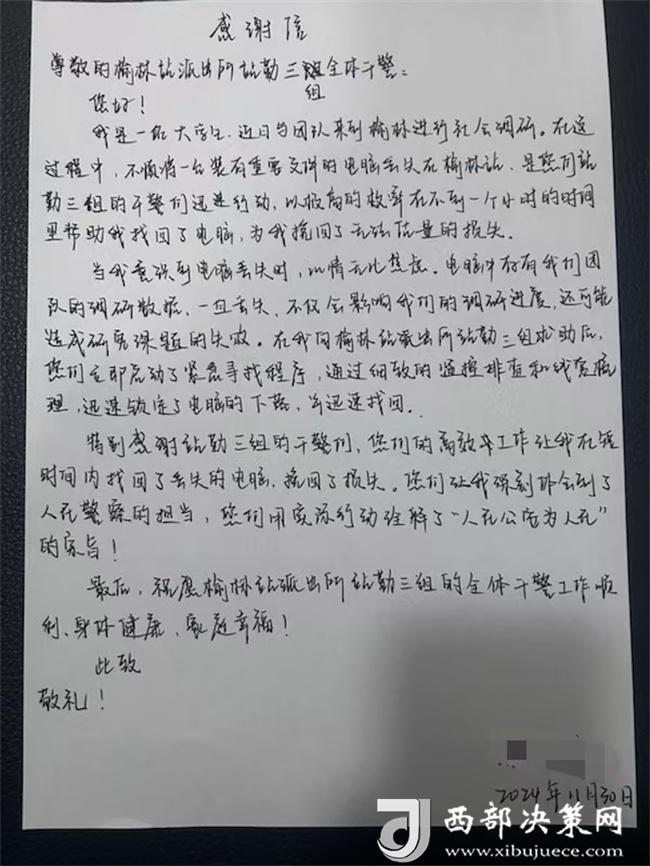 感谢信
尊敬的榆林站派出所站勤三组全体干警：
您好！
我是一位大学生，近日与团队来到榆林进行社会调研。在这
过程中，不慎将一台装有重要文件的电脑丢失在榆林站，是您们站
勤三组的干警们迅速行动，以极高的效率在不到一个小时的时间
里帮助我找回了电脑，为我挽回了无法估量的损失。
当我意识到电脑丢失时，心情无比焦急。电脑中存有我们团
队的调研数据，一旦丢失，不仅会影响我们的调研进度，还可能
造成研究课题的失败。在我向榆林站派出所站勤三组求助后，
您们立即启动了紧急寻找程序，通过细致的监控排查和线索梳
理，迅速锁定了电脑的下落，并迅速找回。
特别感谢站勤三组的干警们，您们的高效率工作让我在短
时间内找回了丢失的电脑，挽回了损失。您们让我深刻体会到了
人民警察的担当，您们用实际行动诠释了“人民公安为人民”
的宗旨！
最后，祝愿榆林站派出所站勤三组的全体干警工作顺
利、身体健康、家庭幸福！
此致
敬礼！
2024年11月30日
西部决策网
www.xibujuece.com